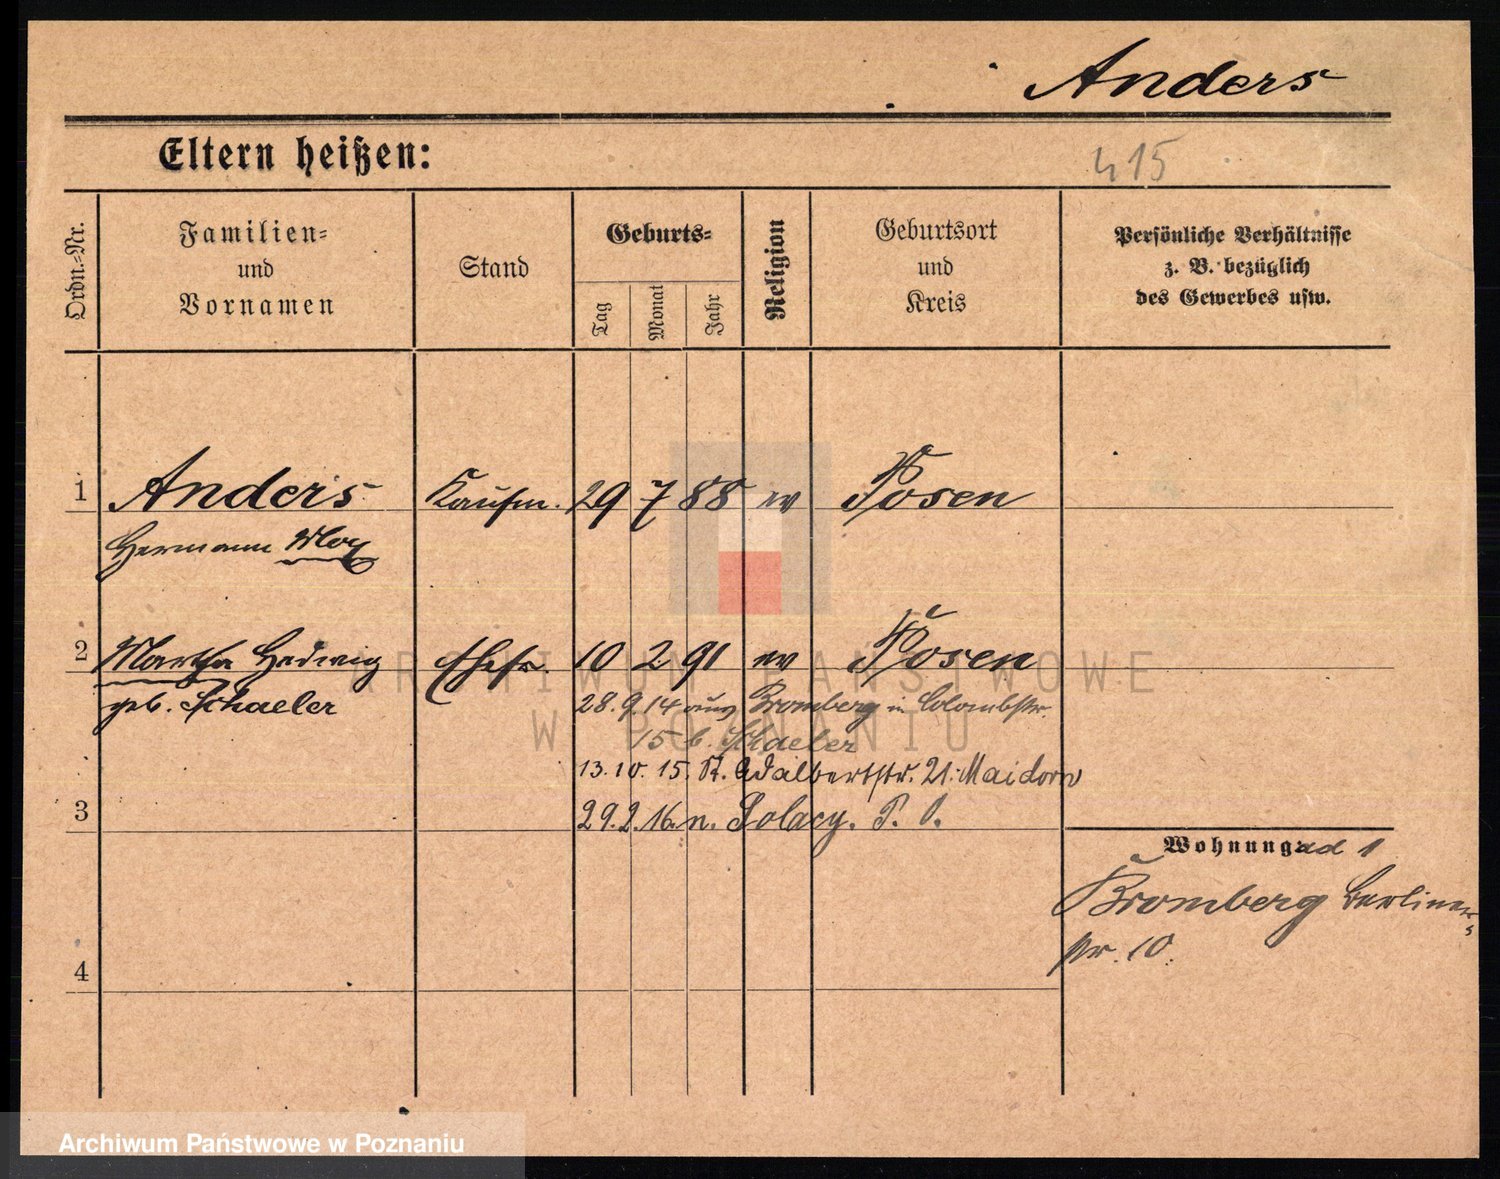 Anders
Eltern heißen:
415
Ordn.-Nr.
Familien-
und
Vornamen
Stand
Geburts-
Tag
Monat
Jahr
Religion
Geburtsort
und
Kreis
Persönliche Verhältnisse
z. B. bezüglich
des Gewerbes usw.
1 Anders Kaufm. 29 7 88 ev Posen
Hermann Max
2 Martha Hedwig Ehefr. 10 2 91 ev Posen
geb. Schaeler
28.9.14 aus Bromberg in Colombstr.
15 b. Schaeler
13.10.15. St. Adalbertstr. 21. Maidorn
3 29.2.16. n. Solacz. P. O.
Wohnung ad 1
Bromberg Berliner-
str. 10.
4
ARCHIWUM PAŃSTWOWE
W POZNANIU
Archiwum Państwowe w Poznaniu